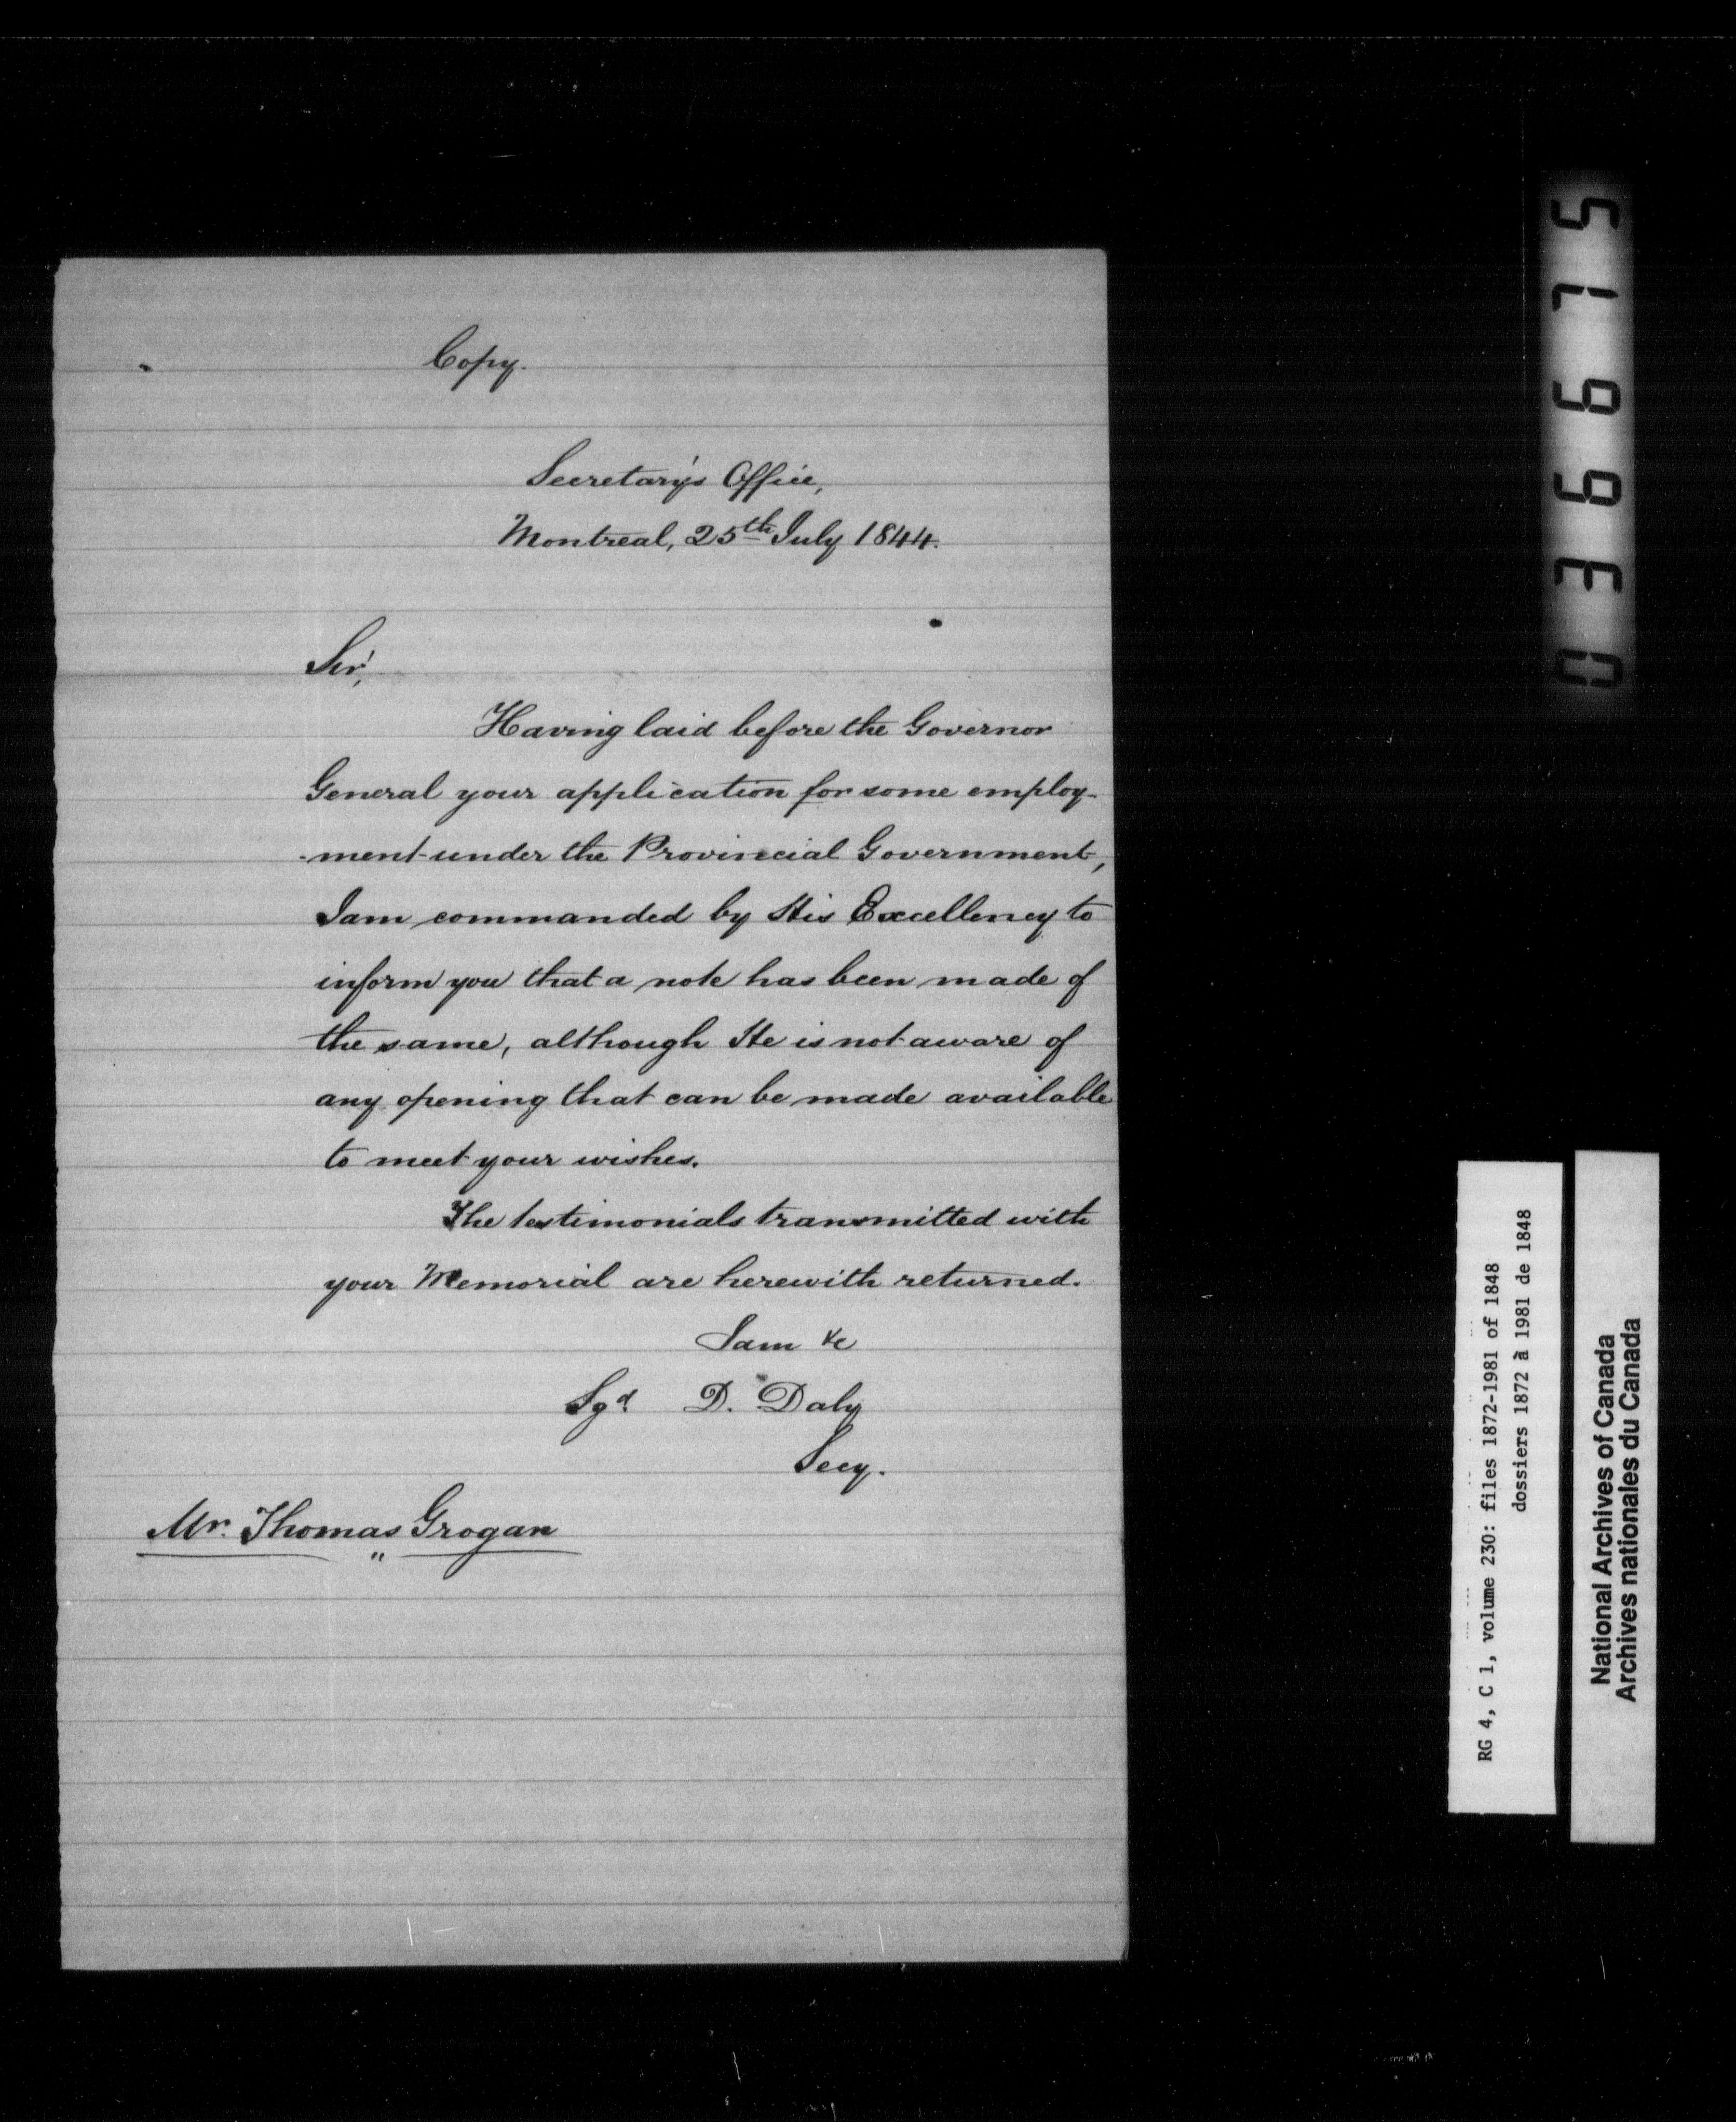 Copy.
Secretary's Office,
Montreal, 25th July 1844.
Sir,
Having laid before the Governor
General your application for some employ-
-ment under the Provincial Government,
I am commanded by His Excellency to
inform you that a note has been made of
the same, although He is not aware of
any opening that can be made available
to meet your wishes.
The testimonials transmitted with
your Memorial are herewith returned.
I am &c
Sgd D. Daly
Secy.
Mr. Thomas Grogan
"
036675
RG 4, C 1, volume 230: files 1872-1981 of 1848
dossiers 1872 à 1981 de 1848
National Archives of Canada
Archives nationales du Canada